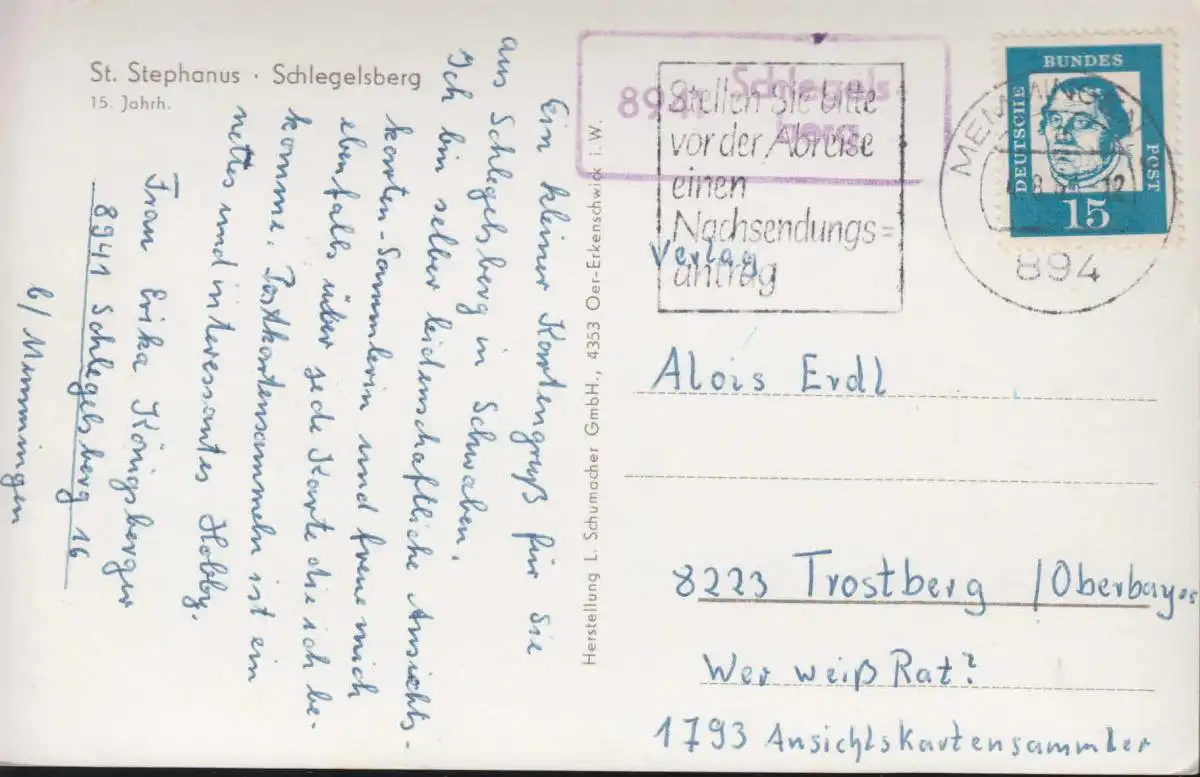 St. Stephanus · Schlegelsberg
15. Jahrh.
Ein kleiner Kartengruß für Sie
aus Schlegelsberg in Schwaben.
Ich bin selber leidenschaftliche Ansichts-
karten-Sammlerin und freue mich
ebenfalls über jede Karte die ich be-
komme. Postkartensammeln ist ein
nettes und interessantes Hobby.
Frau Erika Königsberger
8941 Schlegelsberg 16
b/Memmingen
Herstellung L. Schumacher GmbH., 4353 Oer-Erkenschwick i. W.
8941 Schlegels
berg
Stellen Sie bitte
vor der Abreise
einen
Nachsendungs=
antrag
MEMMINGEN
12
894
DEUTSCHE
BUNDES
POST
15
Verlag
Alois Erdl
8223 Trostberg /Oberbay.
Wer weiß Rat?
1793 Ansichtskartensammler